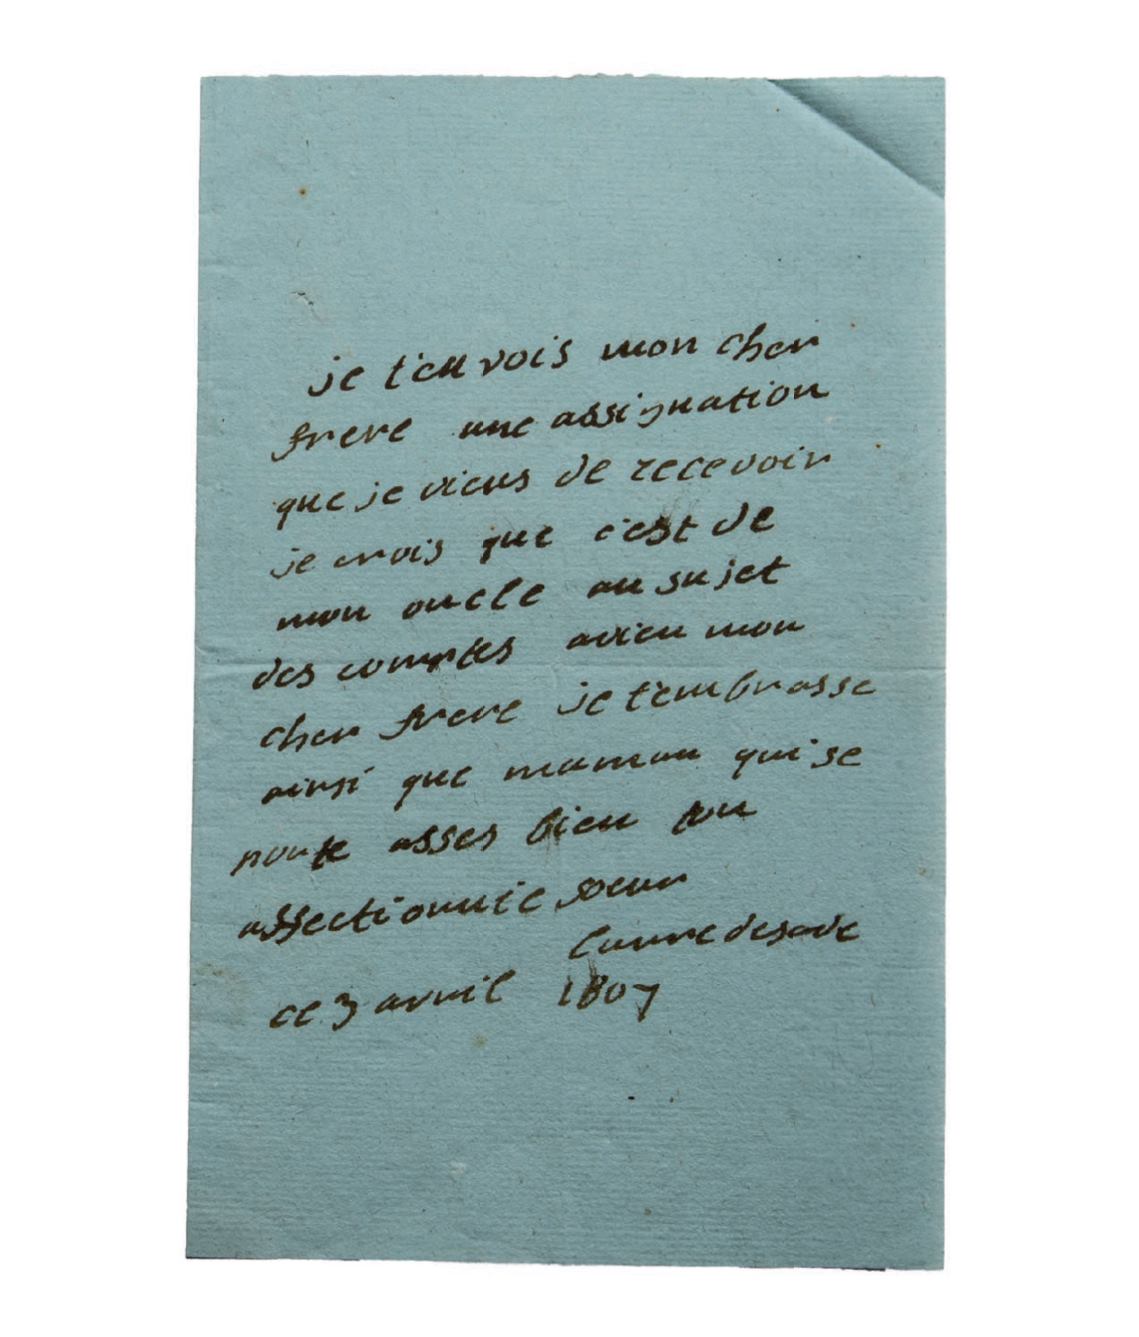 je t'en vois mon cher
frere une assignation
que je viens de recevoir
je crois que c'est de
mon oncle au sujet
des comptes adieu mon
cher frere je t'embrasse
ainsi que maman qui se
porte asses bien ton
affectionnée soeur
Laure desade
ce 3 avril 1807